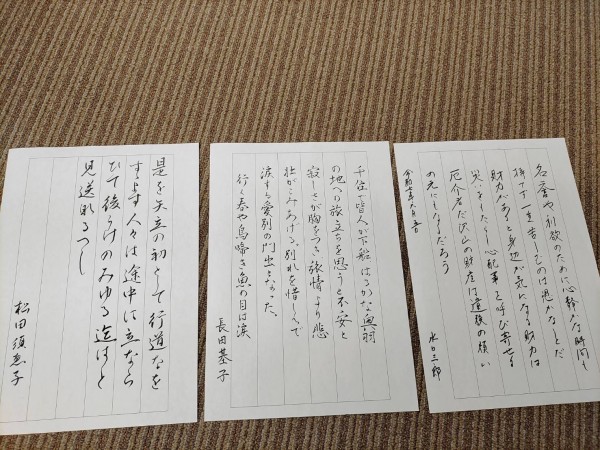 名誉や利欲のために心静かな時間も
持てず一生苦しむのは愚かなことだ
財力があると身辺が気になる財力は
災いをもたらし心配事を呼び寄せる
厄介者だ沢山の財産は遺族の煩い
の元にもなるだろう
令和七年
水口三郎
千住で皆人が下船はるかな奥羽
の地への旅立ちを思うと不安と
寂しさが胸をつき旅情より悲
壮がこみあげる。別れを惜しんで
涙する愛別の門出となった。
行く春や鳥啼き魚の目は涙
長田基子
是を矢立の初として行道なを
すゝまず人々は途中に立なら
びて後かげのみゆる迄はと
見送なるべし
松田須恵子